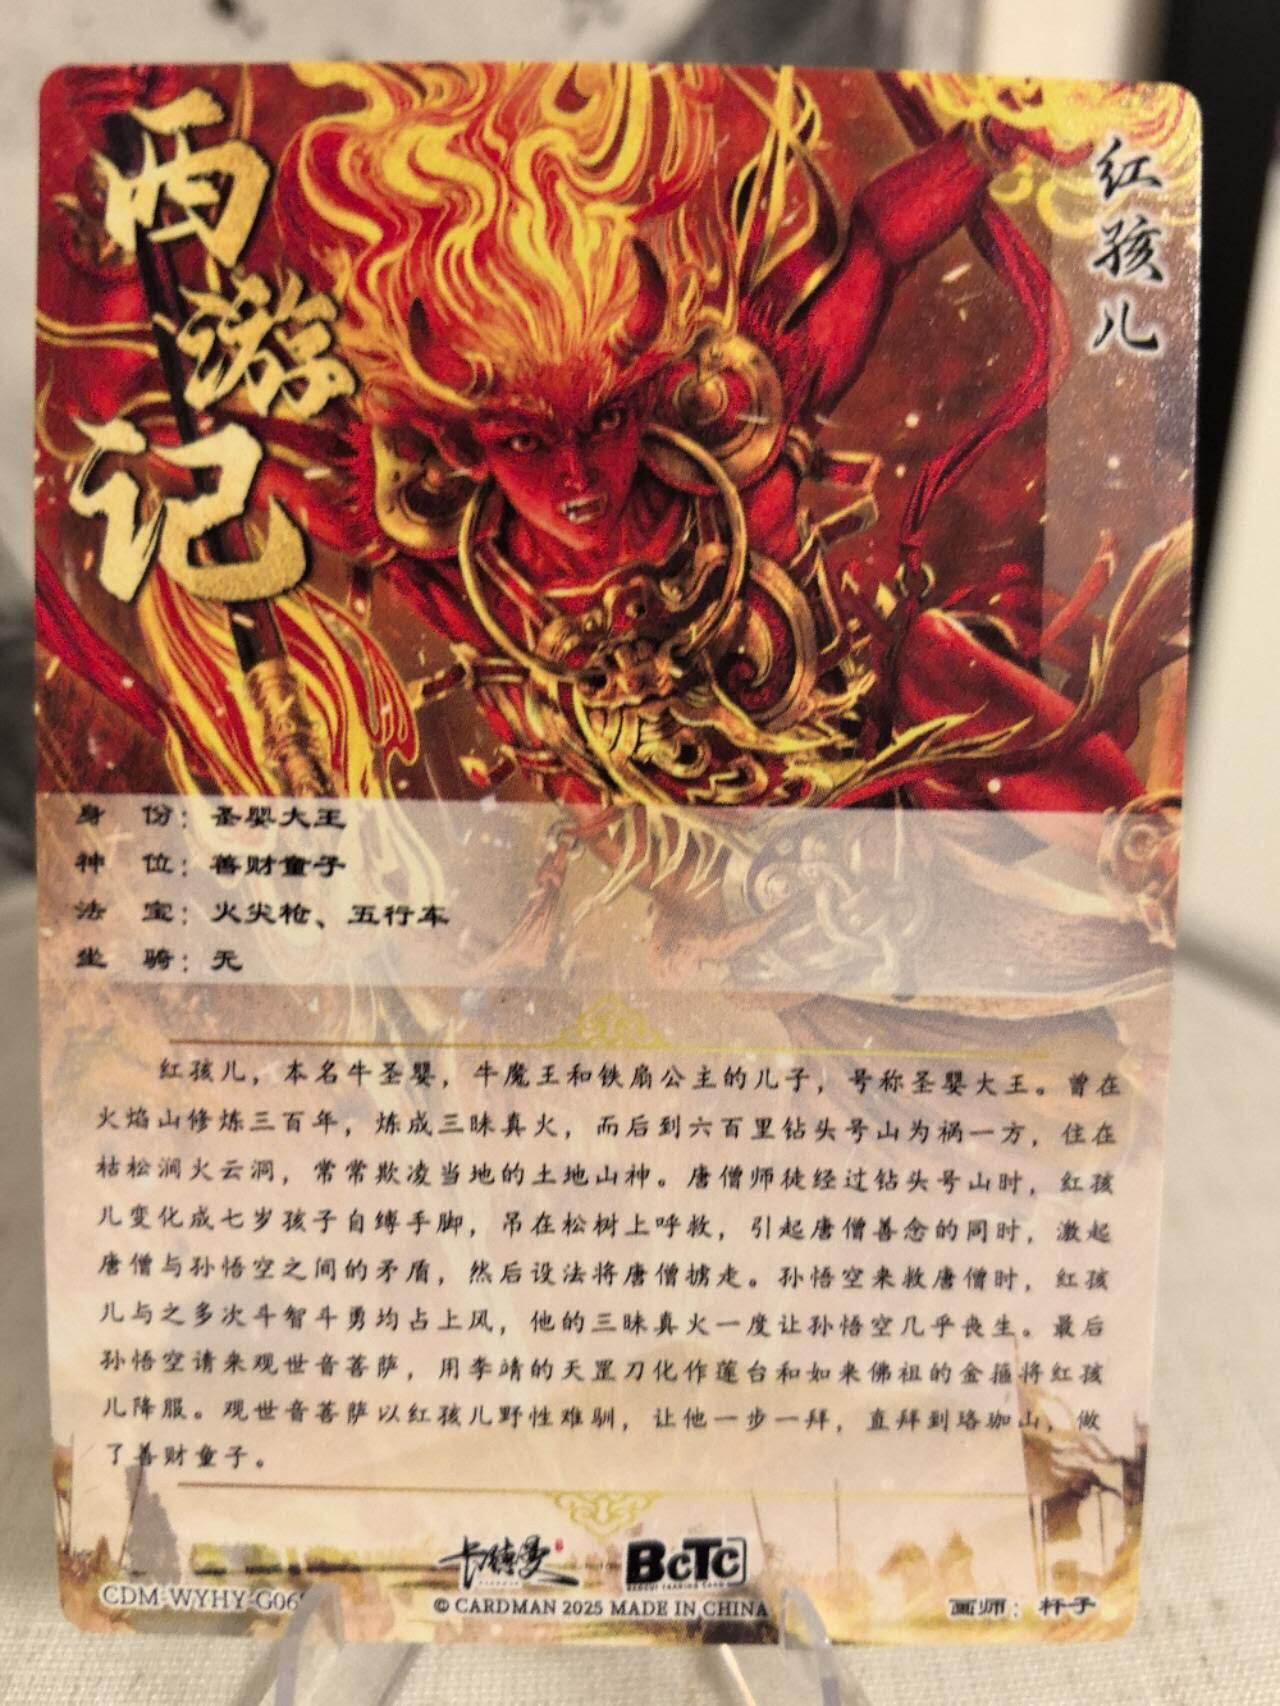 西游记
红孩儿
身 份：圣婴大王
神 位：善财童子
法 宝：火尖枪、五行车
坐 骑：无
红孩儿，本名牛圣婴，牛魔王和铁扇公主的儿子，号称圣婴大王。曾在
火焰山修炼三百年，炼成三昧真火，而后到六百里钻头号山为祸一方，住在
枯松涧火云洞，常常欺凌当地的土地山神。唐僧师徒经过钻头号山时，红孩
儿变化成七岁孩子自缚手脚，吊在松树上呼救，引起唐僧善念的同时，激起
唐僧与孙悟空之间的矛盾，然后设法将唐僧掳走。孙悟空来救唐僧时，红孩
儿与之多次斗智斗勇均占上风，他的三昧真火一度让孙悟空几乎丧生。最后
孙悟空请来观世音菩萨，用李靖的天罡刀化作莲台和如来佛祖的金箍将红孩
儿降服。观世音菩萨以红孩儿野性难驯，让他一步一拜，直拜到珞珈山，做
了善财童子。
卡德曼
BCTC
CDM-WYHY-G06
© CARDMAN 2025 MADE IN CHINA
画师：杆子